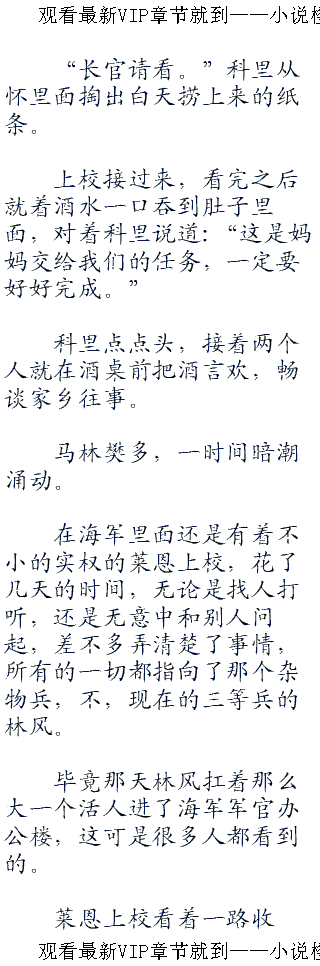 观看最新VIP章节就到——小说
“长官请看。”科里从
怀里面掏出白天捞上来的纸
条。
上校接过来，看完之后
就着酒水一口吞到肚子里
面，对着科里说道：“这是妈
妈交给我们的任务，一定要
好好完成。”
科里点点头，接着两个
人就在酒桌前把酒言欢，畅
谈家乡往事。
马林樊多，一时间暗潮
涌动。
在海军里面还是有着不
小的实权的莱恩上校，花了
几天的时间，无论是找人打
听，还是无意中和别人问
起，差不多弄清楚了事情，
所有的一切都指向了那个杂
物兵，不，现在的三等兵的
林风。
毕竟那天林风扛着那么
大一个活人进了海军军官办
公楼，这可是很多人都看到
的。
莱恩上校看着一路收
观看最新VIP章节就到——小说